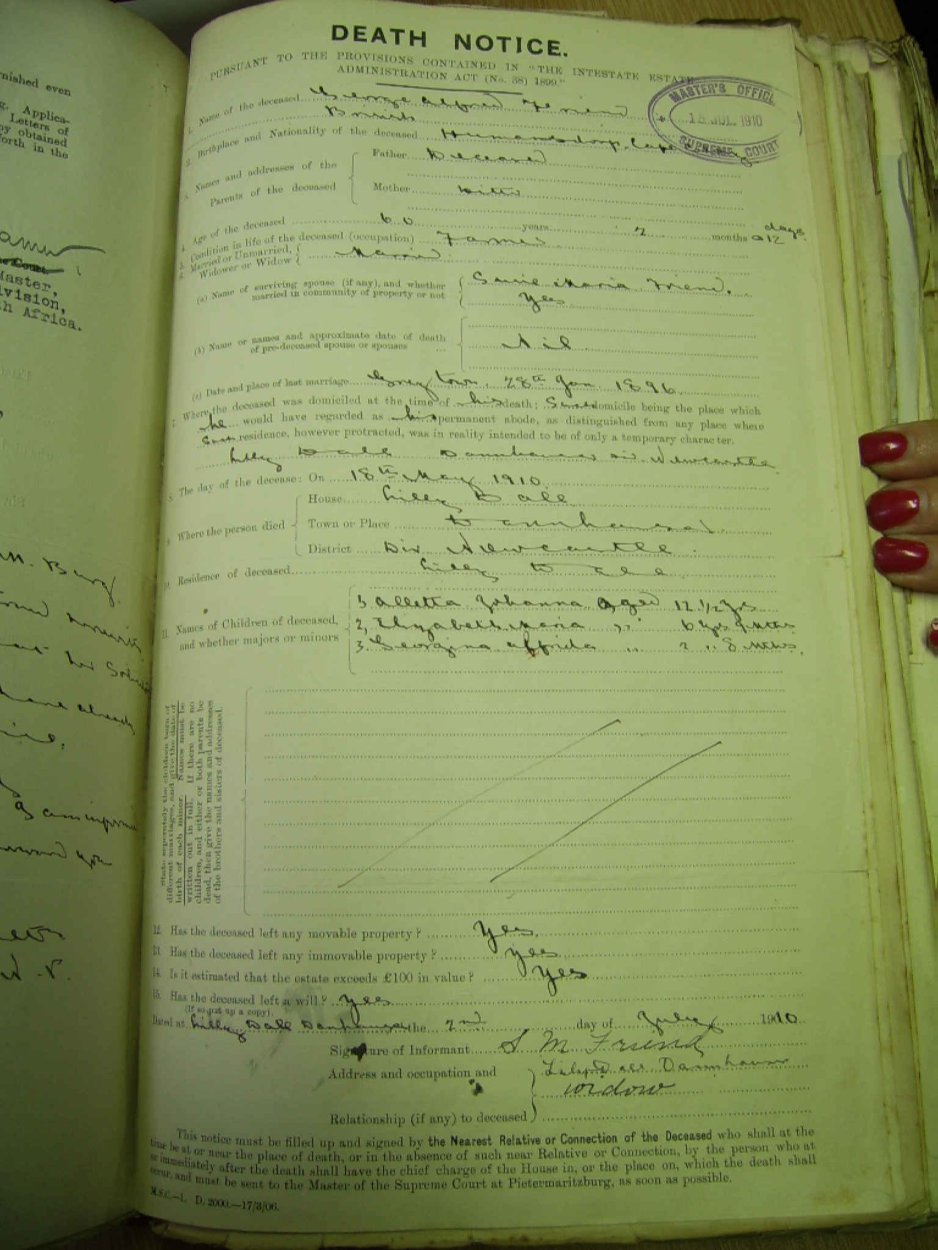 nished even
g. Applica-
Letters of
by obtained
orth in the
Master,
vision,
h Africa.
DEATH NOTICE.
PURSUANT TO THE PROVISIONS CONTAINED IN "THE INTESTATE ESTATE
ADMINISTRATION ACT (No. 38) 1899."
MASTER'S OFFICE
18 JUL. 1910
SUPREME COURT
1. Name of the deceased George Alfred Friend
British
2. Birthplace and Nationality of the deceased Humansdorp, Cape
3. Names and addresses of the Parents of the deceased
Father Deceased
Mother Ditto
4. Age of the deceased 60 years 7 months 12 days
5. Condition in life of the deceased (occupation) Farmer
6. Married or Unmarried, Widower or Widow Married
(a) Name of surviving spouse (if any), and whether married in community of property or not
Susie Maria Friend.
Yes
(b) Name or names and approximate date of death of pre-deceased spouse or spouses
Nil
(c) Date and place of last marriage Greytown, 28th Jan 1896
7. Where the deceased was domiciled at the time of his death; domicile being the place which
he would have regarded as his permanent abode, as distinguished from any place where
residence, however protracted, was in reality intended to be of only a temporary character.
Lilly Dale Dannhauser div. Newcastle
8. The day of the decease: On 18th May 1910
9. Where the person died
House Lilly Dale
Town or Place Dannhauser
District Div Newcastle
10. Residence of deceased Lilly Dale
11. Names of Children of deceased, and whether majors or minors
1, Alletta Johanna aged 12 1/2 yrs
2, Elizabeth Maria ,, 6 yrs 9 Mths
3. Georgina Alfrida ,, 2 ,, 8 Mths.
State separately the children born of
different marriages, and give the date of
birth of each minor. Names must be
written out in full. If there are no
children, and either or both parents be
dead, then give the names and addresses
of the brothers and sisters of deceased.
12. Has the deceased left any movable property? Yes
13. Has the deceased left any immovable property? Yes
14. Is it estimated that the estate exceeds £100 in value? Yes
15. Has the deceased left a will? Yes
(If so put up a copy).
Dated at Lilly Dale Danhauser the 2nd day of July 1910
Signature of Informant S M Friend
Address and occupation and Dannhauser
widow
Relationship (if any) to deceased
This notice must be filled up and signed by the Nearest Relative or Connection of the Deceased who shall at the
time be at or near the place of death, or in the absence of such near Relative or Connection, by the person who at
or immediately after the death shall have the chief charge of the House in, or the place on, which the death shall
occur, and must be sent to the Master of the Supreme Court at Pietermaritzburg, as soon as possible.
M.S.C.—1. D. 2000.—17/3/06.